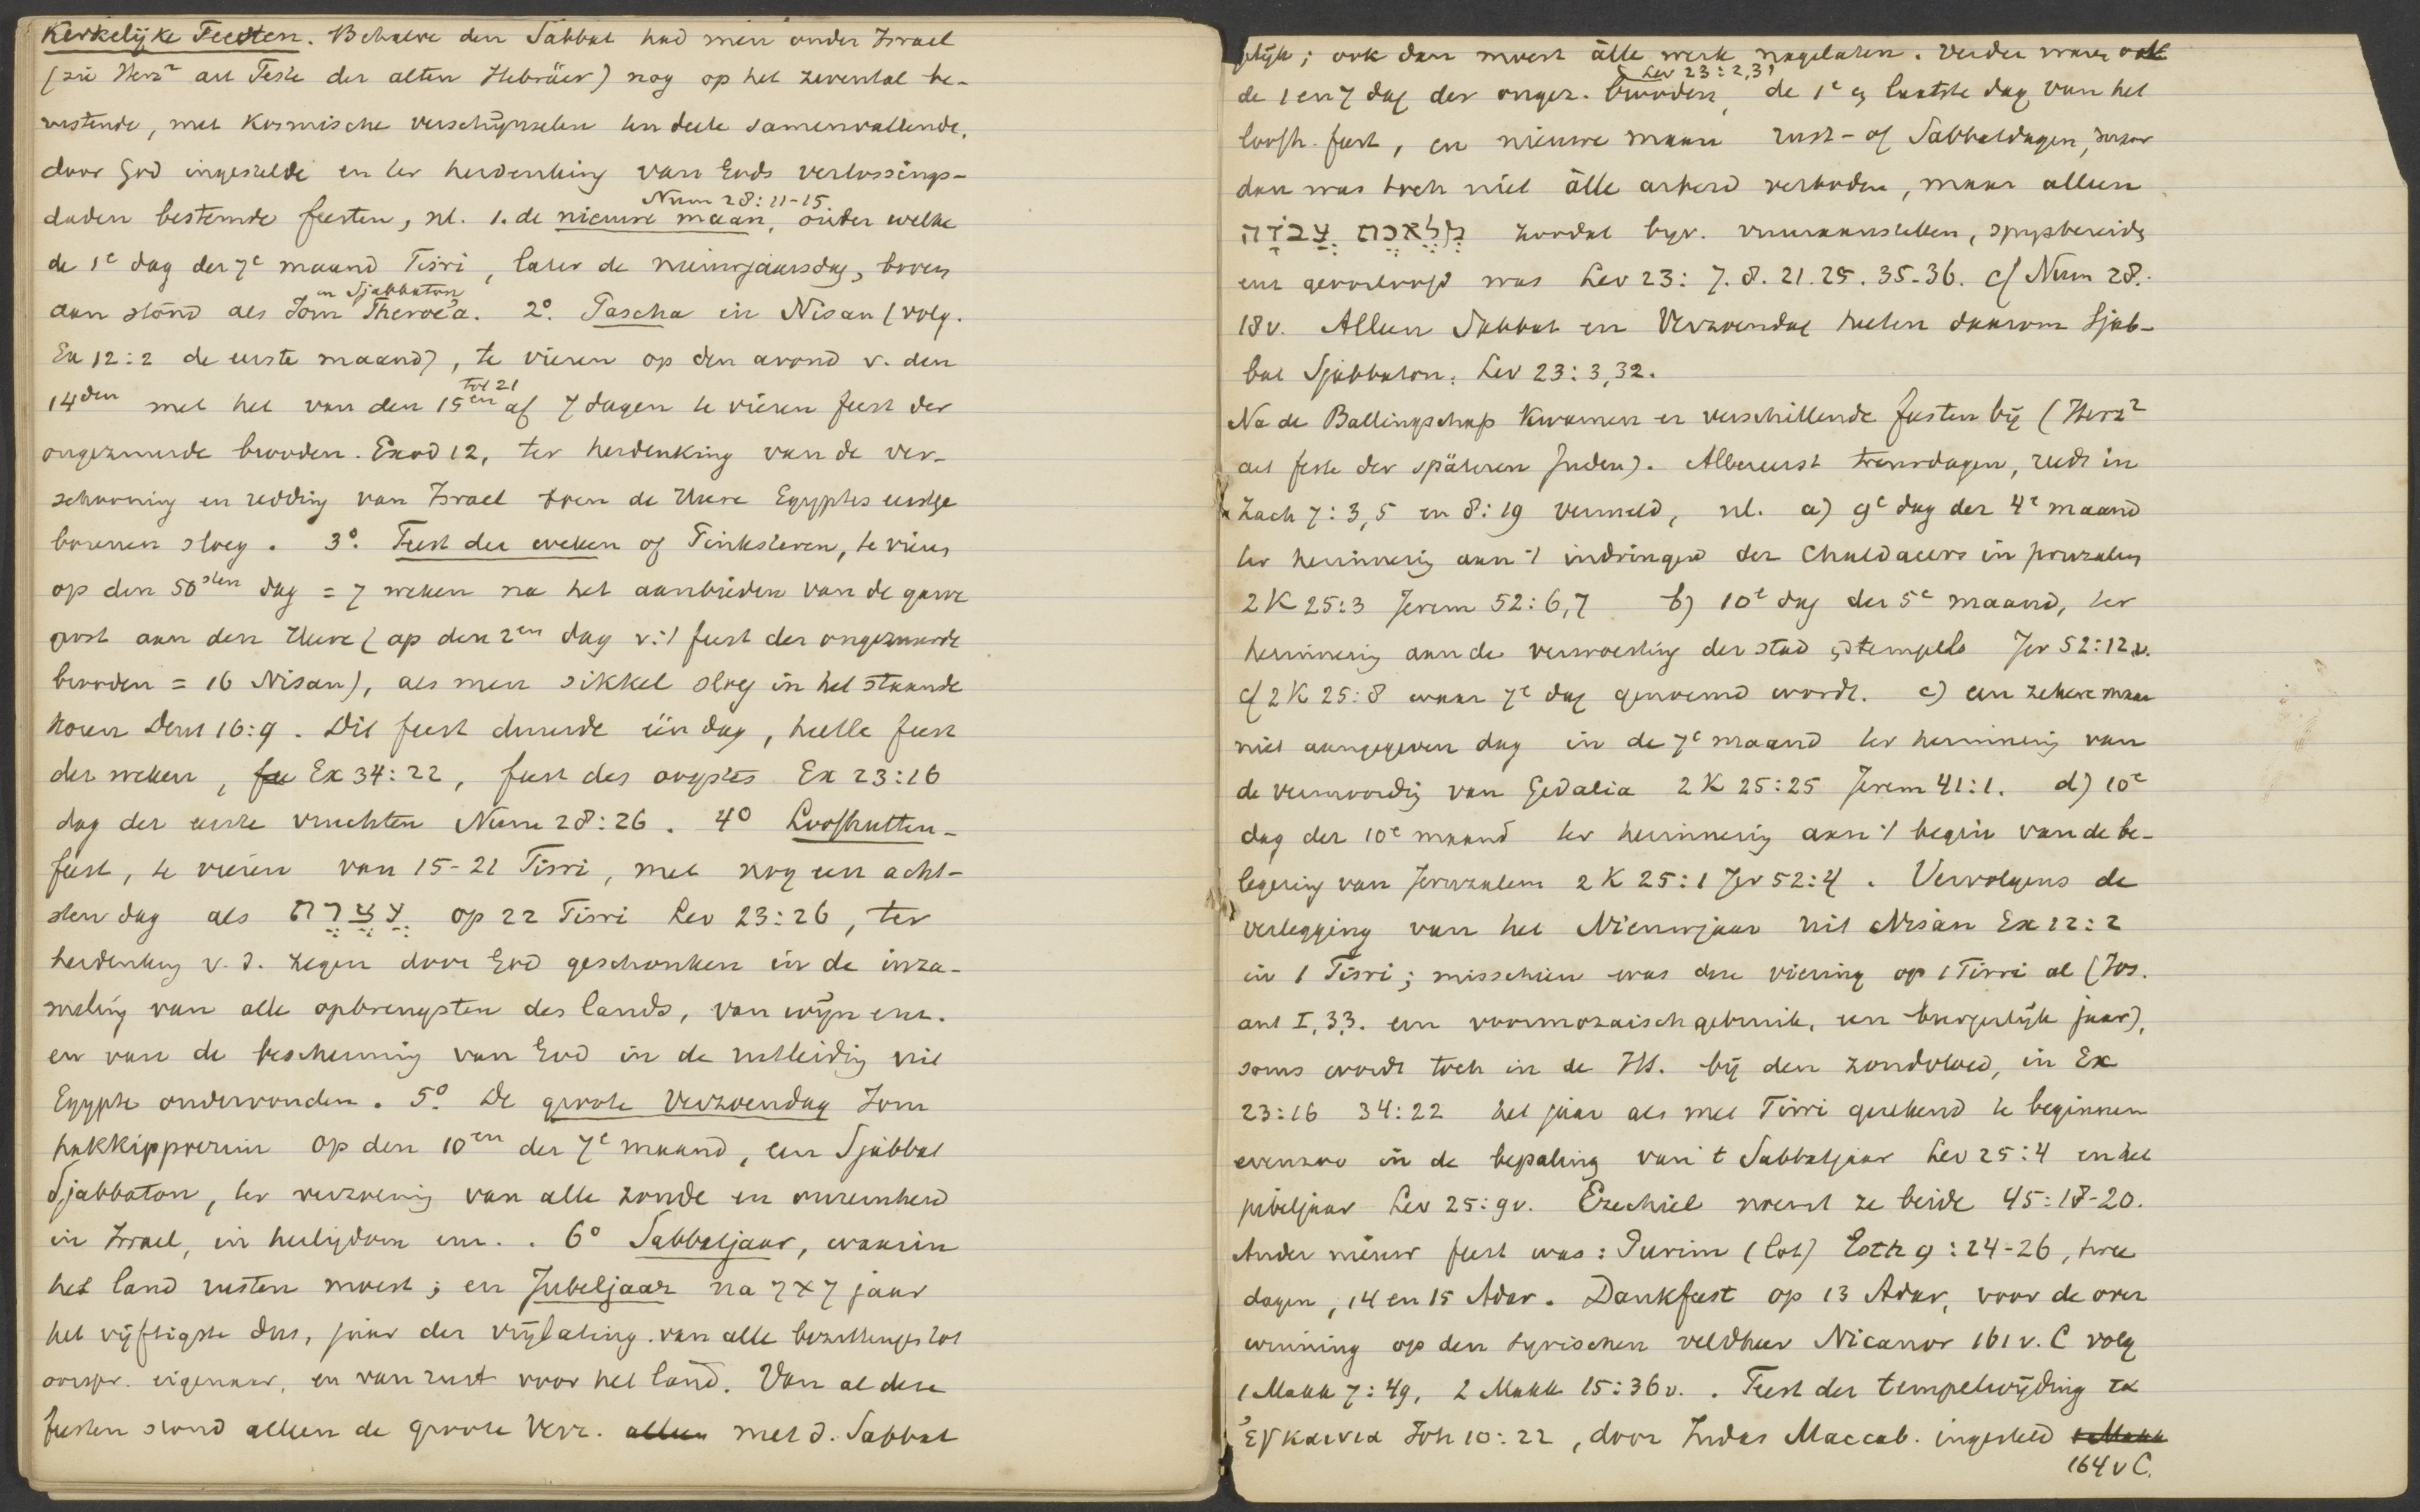 Kerkelijke Feesten. Behalve den Sabbat had men onder Israel
(zie Herz² art Feste der alten Hebräer) nog op het zevental be-
rustende, met kosmische verschijnselen ten deele samenvallende,
door God ingestelde en ter herdenking van Gods verlossings-
Num 28:11-15
daden bestemde feesten, nl. 1. de nieuwe maan, onder welke
de 1e dag der 7e maand Tisri, later de nieuwjaarsdag, boven
en Sjabbaton
aan stond als Jom Theroe'a. 2° Pascha in Nisan (volg.
Ex 12:2 de eerste maand), te vieren op den avond v. den
tot 21
14den met het van den 15en af 7 dagen te vieren feest der
ongezuurde brooden. Exod 12, ter herdenking van de ver-
schooning en redding van Israel toen de Heere Egyptes eerstge
borenen sloeg. 3°. Feest der weken of Pinksteren, te vieren
op den 50sten dag = 7 weken na het aanbieden van de garve
gerst aan den Heere (op den 2en dag v. 't feest der ongezuurde
brooden = 16 Nisan), als men sikkel sloeg in het staande
koren Deut 16:9. Dit feest duurde één dag, heette feest
der weken, Ex 34:22, feest des oogstes Ex 23:16
dag der eerste vruchten Num 28:26. 4° Loofhutten-
feest, te vieren van 15-21 Tisri, met nog een acht-
sten dag als עֲצֶרֶת op 22 Tisri Lev 23:26, ter
herdenking v. d. zegen door God geschonken in de inza-
meling van alle opbrengsten des lands, van wijn enz.
en van de bescherming van God in de uitleiding uit
Egypte ondervonden. 5°. De groote Verzoendag Jom
hakkippoerim op den 10en der 7e maand, een Sjabbat
Sjabbaton, ter verzoening van alle zonde en onreinheid
in Israel, in heiligdom enz. . 6° Sabbatjaar, waarin
het land rusten moest; en Jubeljaar na 7x7 jaar
het vijftigste dus, jaar der vrijlating van alle bezittingen tot
oorspr. eigenaar, en van rust voor het land. Van al deze
feesten stond alleen de groote Verz. alleen met d. Sabbat
gelijk; ook dan moest àlle werk nagelaten. Verder waren ook
Lev 23:2,31
de 1 en 7 dag der ongez. brooden, de 1e en laatste dag van het
loofh. feest, en nieuwe maan rust- of Sabbatdagen,
dan was toch niet àlle arbeid verboden, maar alleen
מְלֶאכֶת עֲבֹדָה zoodat bijv. vuuraansteken, spijsbereiding
enz geoorloofd was Lev 23: 7. 8. 21. 25. 35-36. cf Num 28:
18v. Alleen Sabbat en Verzoendag heeten daarom Sjab-
bat Sjabbaton: Lev 23:3,32.
Na de Ballingschap kwamen er verschillende feesten bij (Herz²
art feste der späteren Juden). Allereerst treurdagen, reeds in
Zach 7:3,5 en 8:19 vermeld, nl. a) 9e dag der 4e maand
ter herinnering aan 't indringen der Chaldaeers in Jeruzalem
2K 25:3 Jerem 52:6,7 b) 10e dag der 5e maand, ter
herinnering aan de verwoesting der stad en tempels Jer 52:12v.
cf 2K 25:8 waar 7e dag genoemd wordt. c) een zekere maar
niet aangegeven dag in de 7e maand ter herinnering van
de vermoording van Gedalia 2K 25:25 Jerem 41:1. d) 10e
dag der 10e maand ter herinnering aan 't begin van de be-
legering van Jeruzalem 2K 25:1 Jer 52:4. Vervolgens de
verlegging van het Nieuwjaar uit Nisan Ex 12:2
in 1 Tisri; misschien was deze viering op 1 Tisri al (Jos.
ant I, 3.3. een voormozaisch gebruik, een burgerlijk jaar),
soms wordt toch in de HS. bij den zondvloed, in Ex
23:16 34:22 het jaar als met Tisri gerekend te beginnen
evenzoo in de bepaling van 't Sabbatjaar Lev 25:4 en het
jubeljaar Lev 25:9v. Ezechiel noemt ze beide 45:18-20.
Ander nieuw feest was: Purim (lot) Esth 9:24-26, twee
dagen, 14 en 15 Adar. Dankfeest op 13 Adar, voor de over
winning op den syrischen veldheer Nicanor 161 v. C volg
1 Makk 7:49, 2 Makk 15:36v. . Feest der tempelwijding τα
ἐγκαινια Joh 10:22, door Judas Maccab. ingesteld 1 Makk
164 v C.